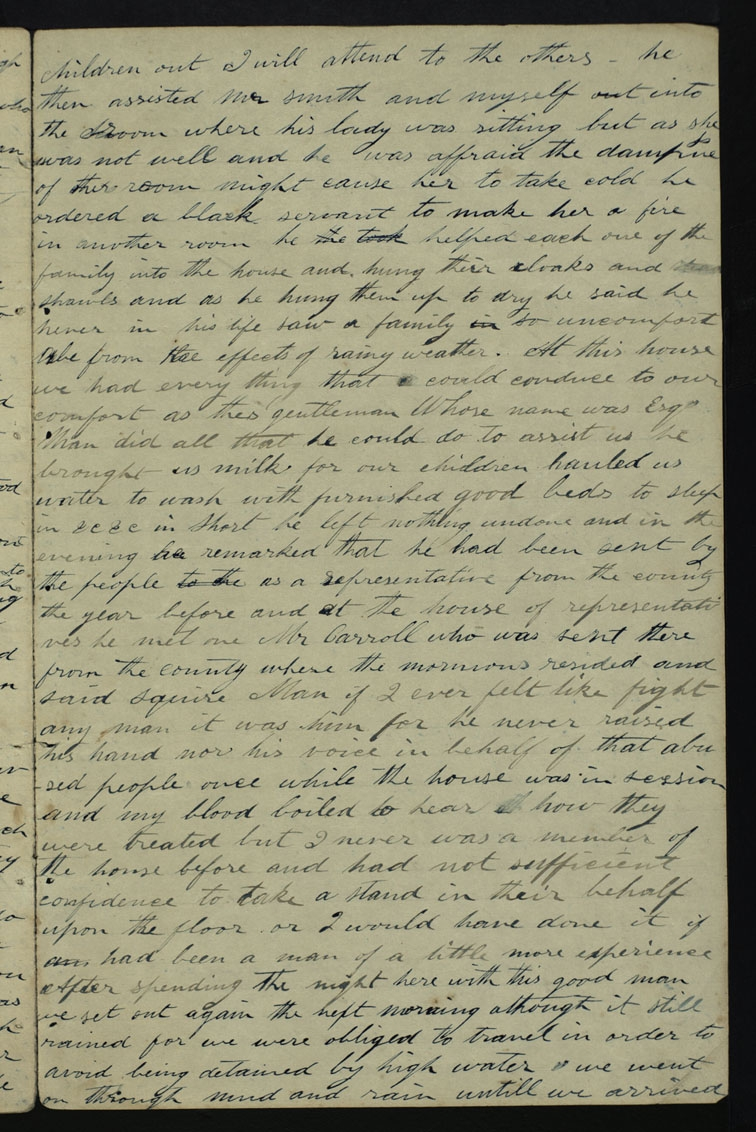 children out I will attend to the others - he
then assisted Mr smith and myself out into
the room where his lady was sitting but as she
was not well and he was affraid the dampne
of ther room might cause her to take cold he
ordered a black servant to make her a fire
in another room he he took helped each one of the
family into the house and hung their cloaks and
shawls and as he hung them up to dry he said he
never in his life saw a family in so uncomfort
able from the effects of rainy weather. At this house
we had every thing that could conduce to our
comfort as this gentleman Whose name was Esqr
Man did all that he could do to assist us he
brought us milk for our chidldren hauled us
water to wash with furnished good beds to sleep
in &c &c in short he left nothing undone and in the
evening he remarked that he had been sent by
the people to the as a representative from the county
the year before and at the house of representati
ves he met one Mr Carroll who was sent there
from the county where the mormons resided and
said squire Man if I ever felt like fight
any man it was him for he never raised
his hand nor his voice in behalf of that abu
-sed people once while the house was in session
and my blood boiled to hear how they
were treated but I never was a member of
the house before and had not sufficient
confidence to take a stand in their behalf
upon the floor or I would have done it if
had been a man of a little more experience
After spending the night here with this good man
we set out again the next morning although it still
rained for we were obliged to travel in order to
avoid being detained by high water we went
on through mud and rain untill we arrived